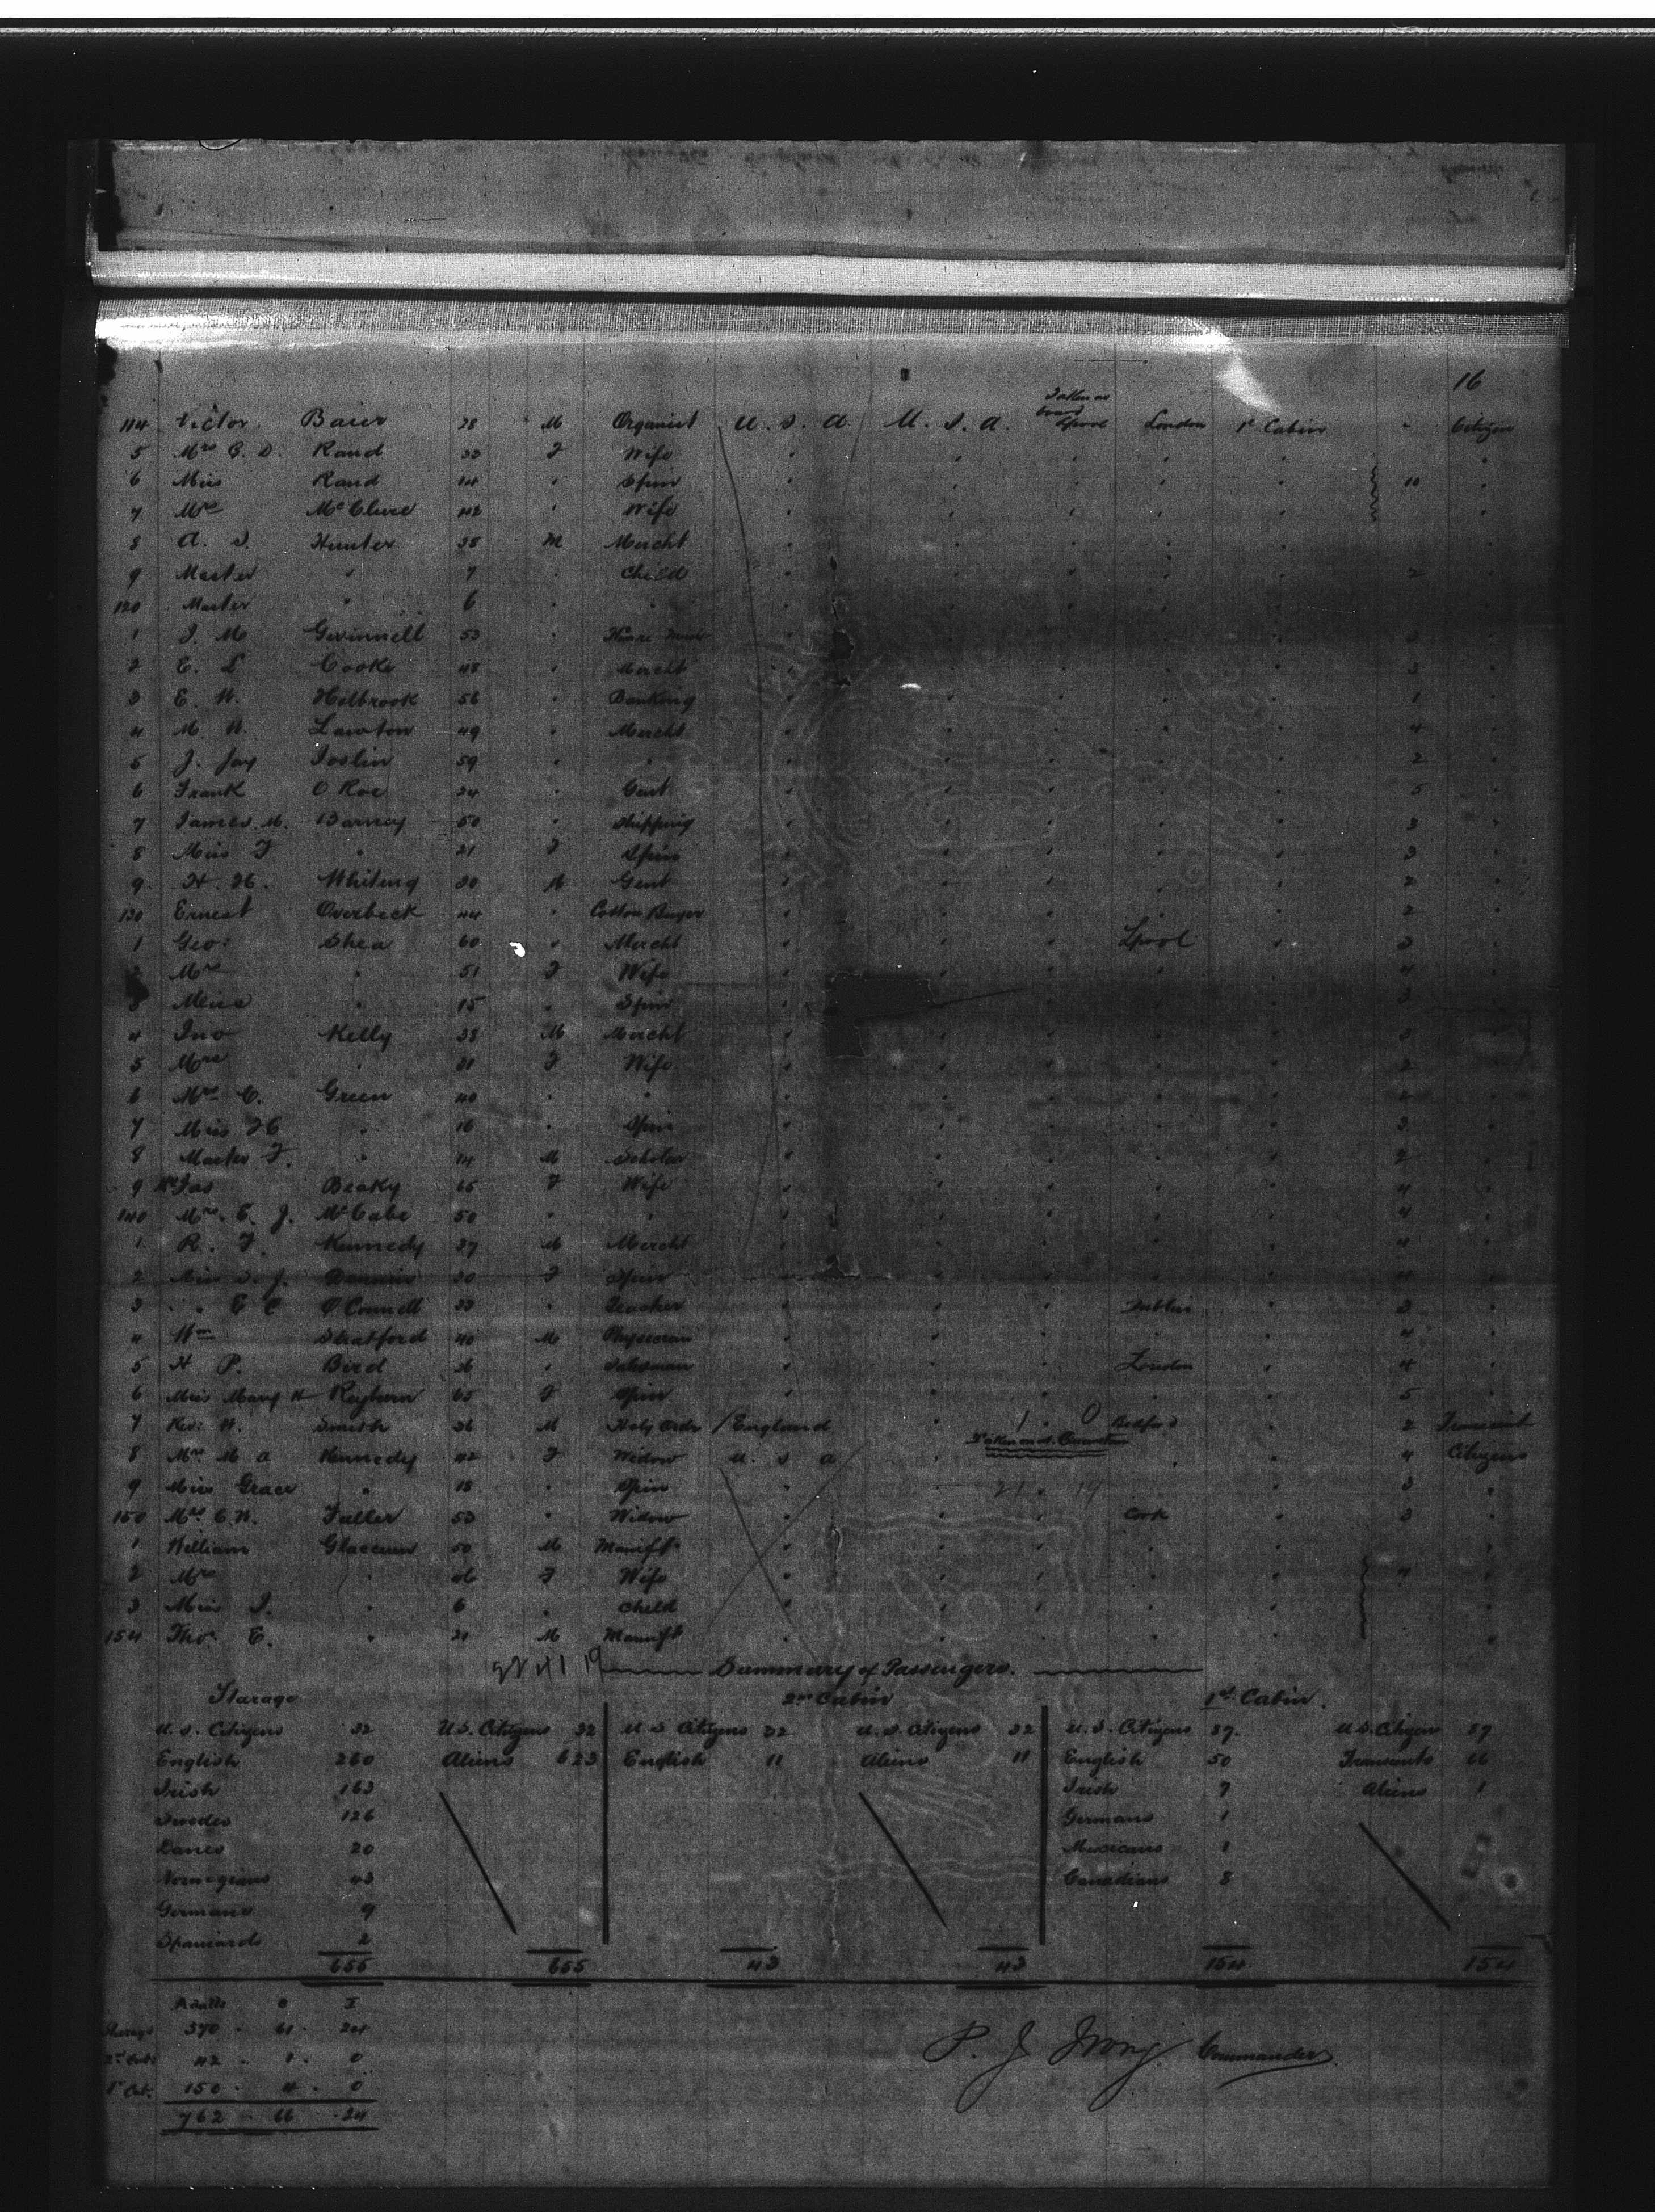 16
Taken on
board
114 Victor Baier 28 M Organist U. S. A. U. S. A. Lpool London 1st Cabin - Citizen
5 Mrs C. D. Rand 33 F Wife " " " " " "
6 Miss Rand 14 " Spin " " " " " 10 "
7 Mrs McClure 42 " Wife " " " " " "
8 A. S. Hunter 38 M Mercht " " " " " "
9 Master " 7 " Child " " " " " 2 "
120 Master " 6 " " " " " " "
1 J. M Gwinnell 53 " " " " " " 3 "
2 E. L Cooke 48 " Mercht " " " " " 3 "
3 E. W. Holbrook 56 " Banking " " " " " 1 "
4 M. W. Lawton 49 " Mercht " " " " " 4 "
5 J. Jay Joslin 59 " " " " " " " 2 "
6 Frank O Roe 24 " Gent " " " " " 5 "
7 James M. Barney 50 " Shipping " " " " " 3 "
8 Miss F " 21 F Spin " " " " " 3 "
9 H. H. Whiting 30 M Gent " " " " " 2 "
130 Ernest Overbeck 44 " Cotton Buyer " " " " " 2 "
1 Geo: Shea 60 " Mercht " " " Lpool " 3 "
Mrs " 51 F Wife " " " " " 4 "
3 Miss " 15 " Spin " " " " " 3 "
4 Jno Kelly 38 M Mercht " " " " " 3 "
5 Mrs " 31 F Wife " " " " " 2 "
6 Mrs C. Green 40 " " " " " " " 2 "
7 Miss " 16 " Spin " " " " " 3 "
8 Master F. " 14 M Scholar " " " " " 2 "
9 Mrs Jas Beaky 65 F Wife " " " " " 4 "
140 Mrs. E. J. McCabe 50 " " " " " " " 4 "
1 R. F. Kennedy 37 M Mercht " " " " " 4 "
2 Miss S. J. Dennis 30 F Spin " " " " " 4 "
3 " " E C O'Connell 33 " Teacher " " " Dublin " 3 "
4 Wm Stratford 40 M Physician " " " " " 4 "
5 H P. Bird 36 " Salesman " " " London " 4 "
6 Miss Mary H Rayburn 65 F Spin " " " " " 5 "
7 Rev: W. Smith 36 M Holy Order England 1 . 0 Bedford " 2 Transient
Taken on at Queenstown
8 Mrs M A Kennedy 42 F Widow U. S A " " 4 Citizens
9 Miss Grace " 18 " Spin " 21 . 19 " " 3 "
150 Mrs C. W. Fuller 53 " Widow " " " Cork " 3 "
1 William Glaccum 50 M Manuft " " " " " "
2 Mrs " 46 F Wife " " " " " 4 "
3 Miss J. " 6 " Child " " " " " "
154 Thos E. " 21 M Manuft " " " " " "
Summary of Passengers.
Starage 2nd Cabin 1st Cabin.
U. S. Citizens 32 U.S. Citizens 32 U S Citizens 32 U. S. Citizens 32 U. S. Citizens 87. U S. Citizens 87
English 260 Aliens 623 English 11 Aliens 11 English 50 Transients 66
Irish 163 Irish 7 Aliens 1
Swedes 126 Germans 1
Danes 20 Mexicans 1
Norwegians 43 Canadians 8
Germans 9
Spaniards 2
655 655 43 43 154 154
Adults C I
Starage 570 . 61 . 24
2nd Cab: 42 . 1 . 0
1st Cab. 150 . 4 . 0
762 . 66 . 24
P. J. Irving Commander